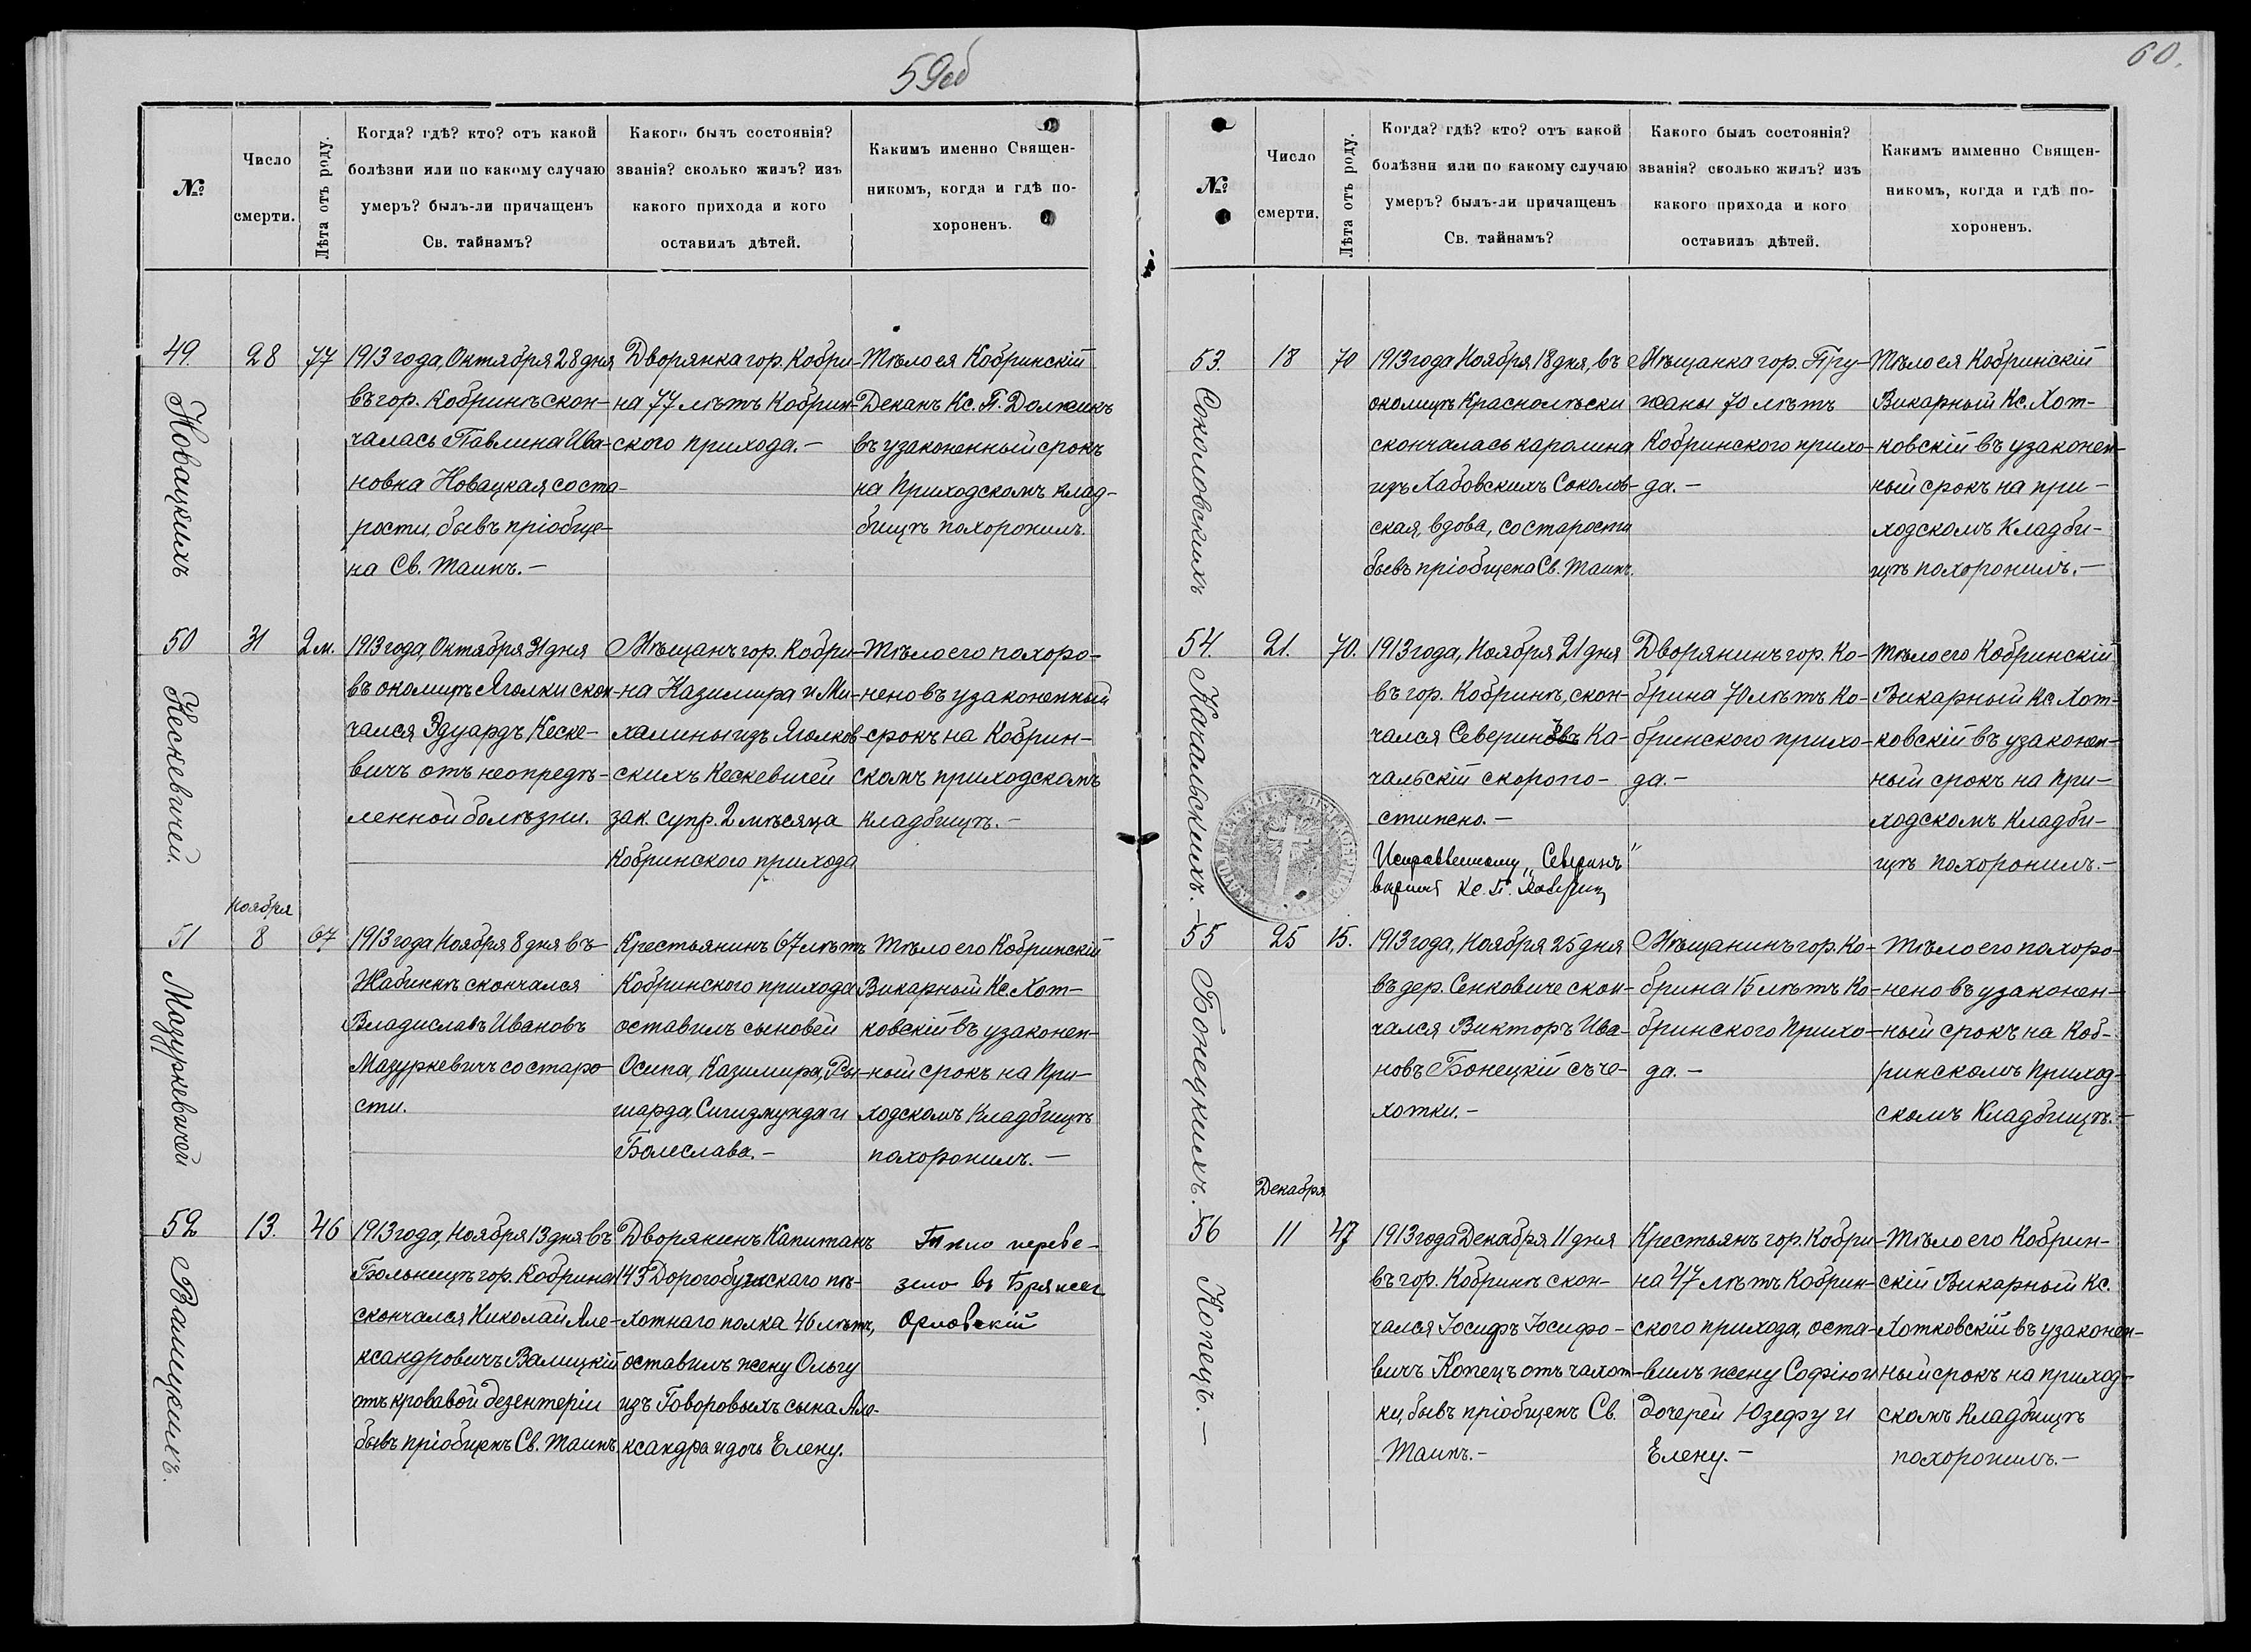 59об
№
Число
смерти.
Лѣта отъ роду.
Когда? гдѣ? кто? отъ какой
болѣзни или по какому случаю
умеръ? былъ-ли причащенъ
Св. тайнамъ?
Какого былъ состоянія?
званія? сколько жилъ? изъ
какого прихода и кого
оставилъ дѣтей.
Какимъ именно Священ-
никомъ, когда и гдѣ по-
хороненъ.
49.
Новацкихъ
28
77
1913 года, Октября 28 дня
въ гор. Кобринѣ скон-
чалась Павлина Ива-
новна Новацкая со ста-
рости, бывъ пріобще-
на Св. Таинъ.-
Дворянка гор. Кобри-
на 77 лѣтъ Кобрин-
ского прихода.-
Тѣло ея Кобринскій
Деканъ Кс. П. Должикъ
въ узаконенный срокъ
на Приходскомъ клад-
бищѣ похоронилъ.
50
Кескевичей.
31
2 м.
1913 года, Октября 31 дня
въ околицѣ Яголки скон-
чался Эдуардъ Кеске-
вичъ отъ неопредѣ-
ленной болѣзни.
Мѣщанъ гор. Кобри-
на Казимира и Ми-
халины изъ Яголков-
скихъ Кескевичей
зак. супр. 2 мѣсяца
Кобринского прихода
Тѣло его похоро-
нено въ узаконенный
срокъ на Кобрин-
скомъ приходскомъ
кладбищѣ.-
Ноября
51
Мазуркевичей
8
67
1913 года Ноября 8 дня въ
Жабинкѣ скончался
Владиславъ Ивановъ
Мазуркевичъ со старо-
сти.
Крестьянинъ 67 лѣтъ
Кобринского прихода
оставилъ сыновей
Осипа, Казимира, Ри-
шарда, Сигизмунда и
Болеслава.-
Тѣло его Кобринскій
Викарный Кс. Хот-
ковскій въ узаконен-
ный срокъ на При-
ходскомъ Кладбищѣ
похоронилъ.-
52
Валицкихъ.
13.
46
1913 года, Ноября 13 дня въ
Больницѣ гор. Кобрина
скончался Николай Але-
ксандровичъ Валицкій
отъ кровавой дезентеріи
бывъ пріобщенъ Св. Таинъ.
Дворянинъ Капитанъ
143 Дорогобужскаго пѣ-
хотнаго полка 46 лѣтъ,
оставилъ жену Ольгу
изъ Говоровыхъ сына Але-
ксандра и дочь Елену.
Тѣло переве-
зено въ Брянскъ
Орловскій
60.
№
Число
смерти.
Лѣта отъ роду.
Когда? гдѣ? кто? отъ какой
болѣзни или по какому случаю
умеръ? былъ-ли причащенъ
Св. тайнамъ?
Какого былъ состоянія?
званія? сколько жилъ? изъ
какого прихода и кого
оставилъ дѣтей.
Какимъ имменно Священ-
никомъ, когда и гдѣ по-
хороненъ.
53.
Соколовскихъ
18
70
1913 года Ноября 18 дня, въ
околицѣ Краснолѣски
скончалась каролина
изъ Хабовскихъ Соколов-
ская, вдова, со старости
бывъ пріобщена Св. Таинъ.
Мѣщанка гор. Пру-
жаны 70 лѣтъ
Кобринского прихо-
да.-
Тѣло ея Кобринскій
Викарный Кс. Хот-
ковскій въ узаконен-
ный срокъ на при-
ходскомъ Кладби-
щѣ похоронилъ.-
54.
Качальскихъ.-
21.
70.
1913 года, Ноября 21 дня
въ гор. Кобринѣ, скон-
чался Северинъ Ка-
чальскій скоропо-
стижно.-
Исправленному „Северинъ"
вѣрить Кс. П.
Дворянинъ гор. Ко-
брина 70 лѣтъ Ко-
бринского прихо-
да.-
Тѣло его Кобринскій
Викарный Кс. Хот-
ковскій въ узаконен-
ный срокъ на При-
ходскомъ Кладби-
щѣ похоронилъ.-
55
Бонецкихъ.-
25
15.
1913 года, Ноября 25 дня
въ дер. Сенковиче скон-
чался Викторъ Ива-
новъ Бонецкій съ че-
хотки.-
Мѣщанинъ гор. Ко-
брина 15 лѣтъ Ко-
бринского Прихо-
да.-
Тѣло его похоро-
нено въ узаконен-
ный срокъ на Коб-
ринскомъ Приход-
скомъ Кладбищѣ.-
Декабря
56
Копецъ.-
11
47
1913 года Декабря 11 дня
въ гор. Кобринѣ скон-
чался Іосифъ Іосифо-
вичъ Копецъ отъ чахот-
ки, бывъ пріобщенъ Св.
Таинъ.-
Крестьянъ гор. Кобри-
на 47 лѣтъ Кобрин-
ского прихода, оста-
вилъ жену Софію и
дочерей Юзефу и
Елену.-
Тѣло его Кобрин-
скій Викарный Кс.
Хотковскій въ узаконен-
ный срокъ на приход-
скомъ Кладбищѣ
похоронилъ.-